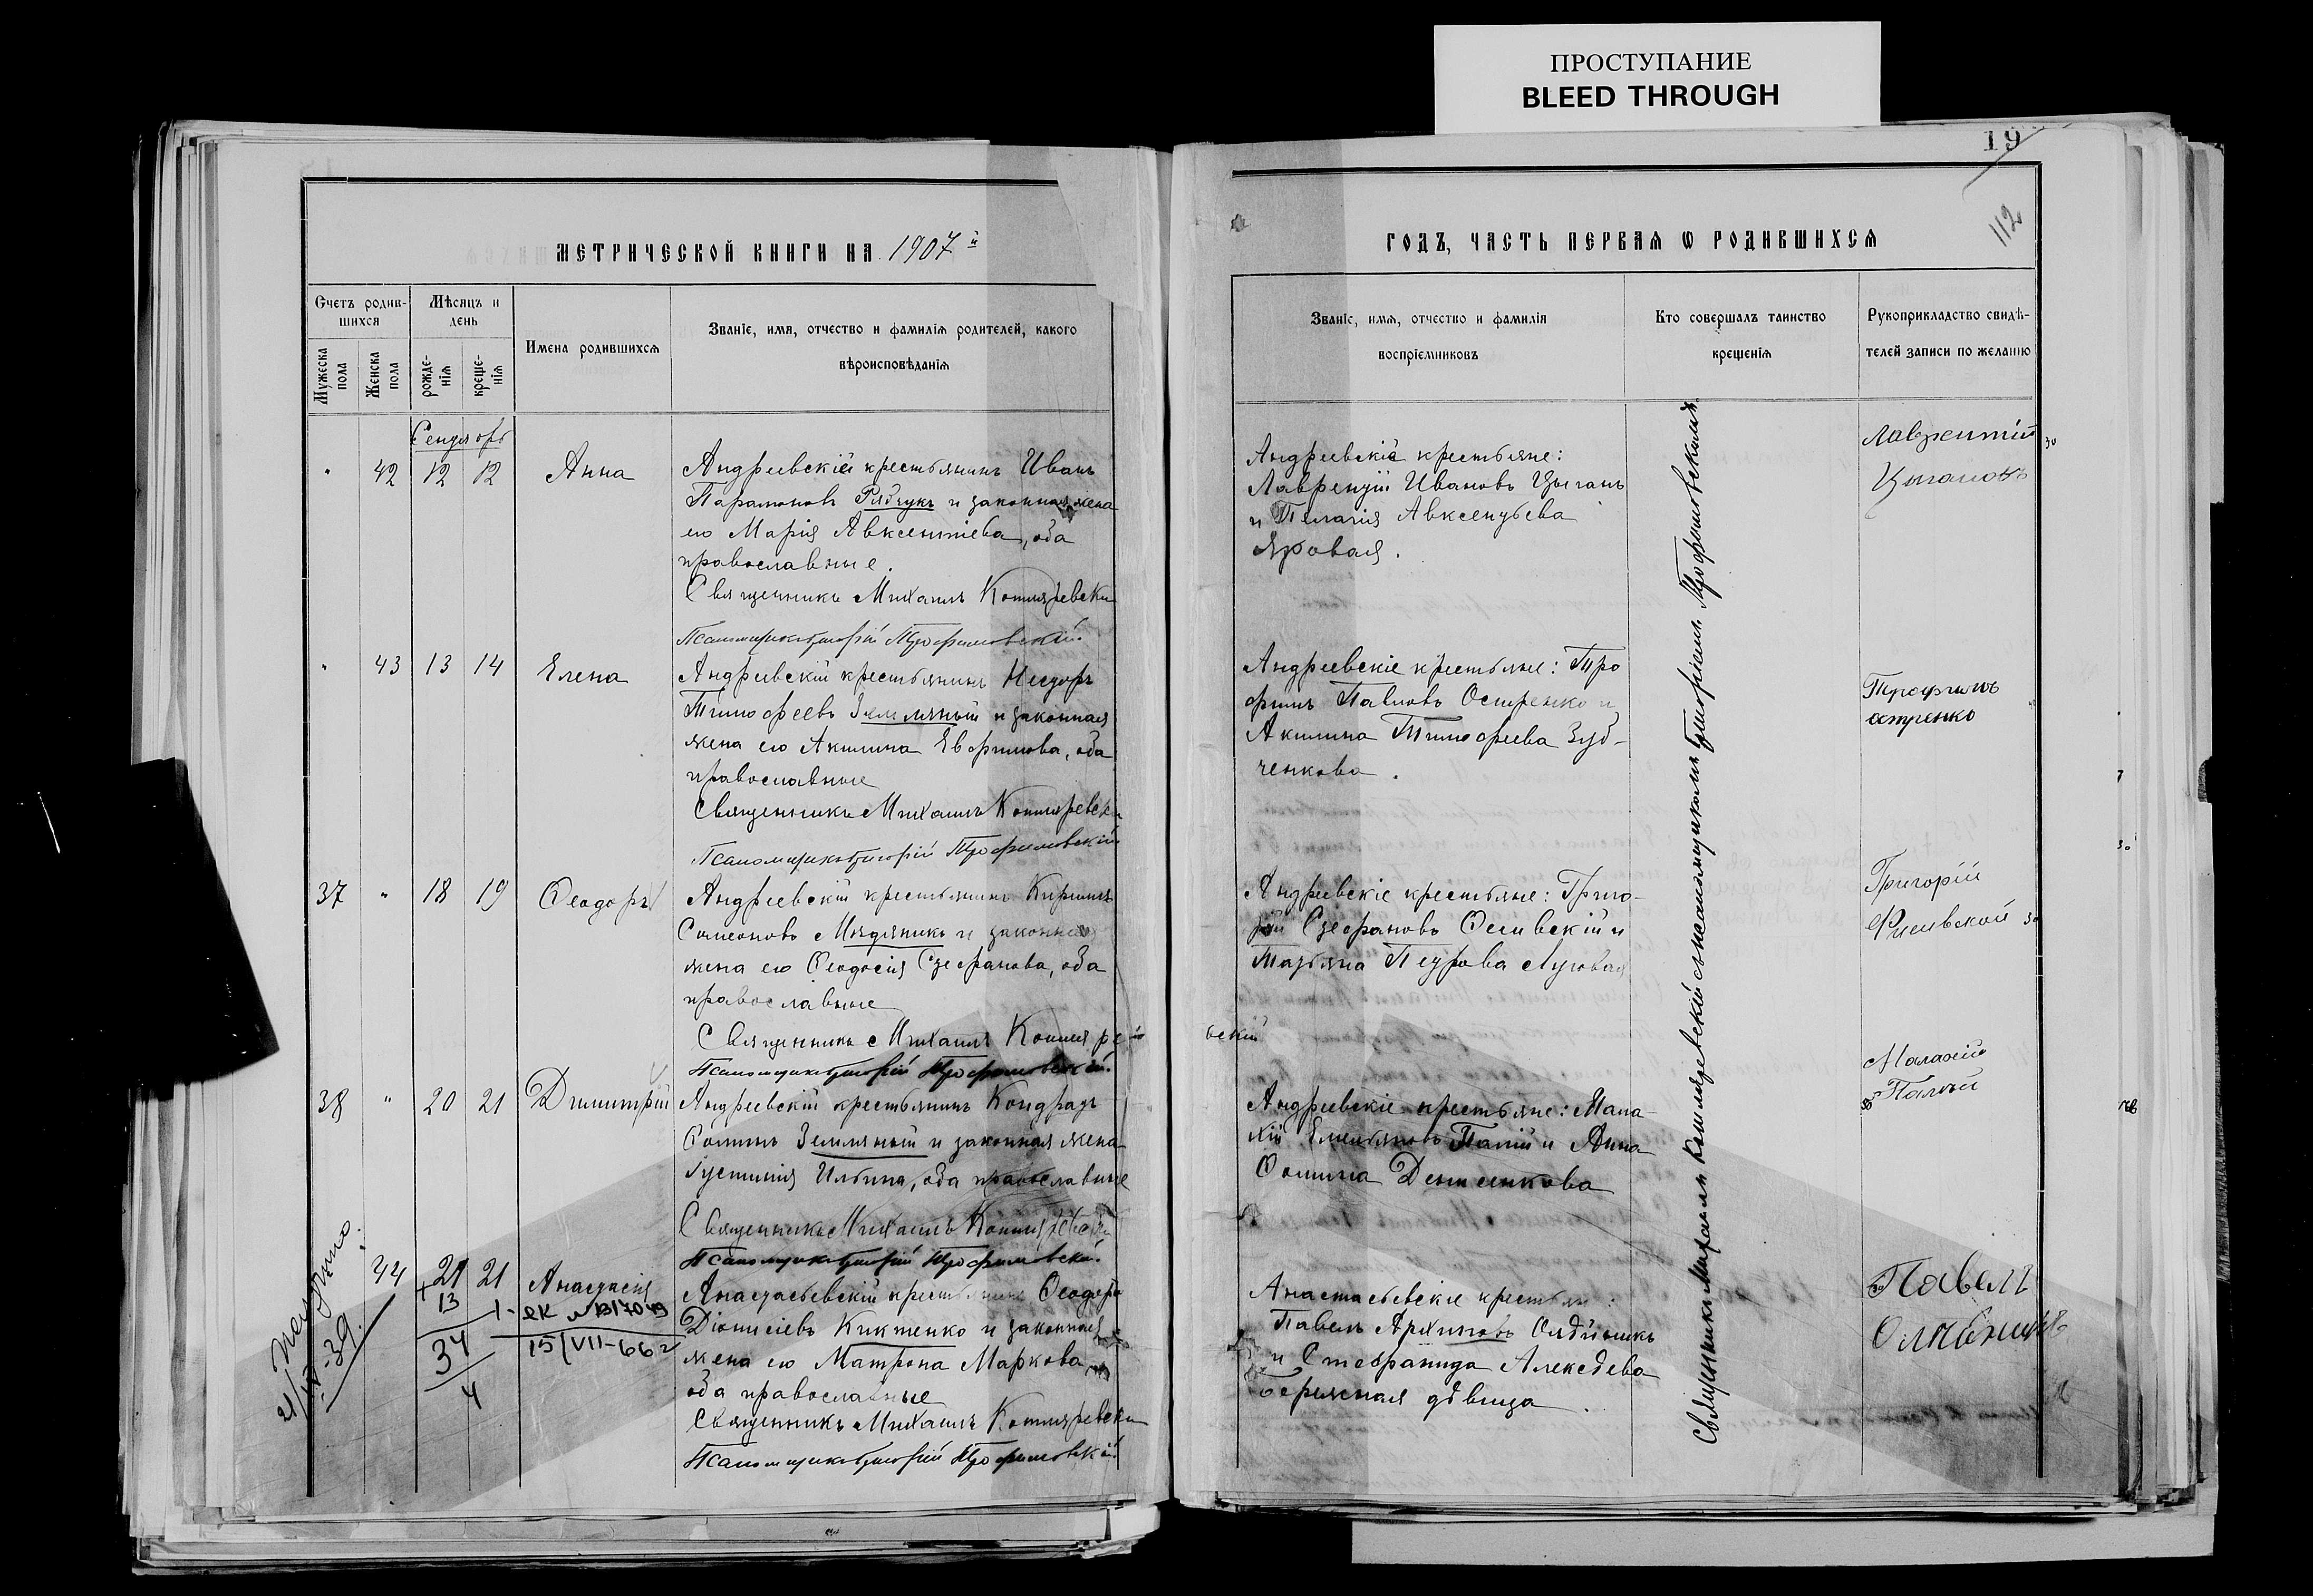 ПРОСТУПАНИЕ
BLEED THROUGH
19
112
МЕТРИЧЕСКОЙ КНИГИ НА 1907й
Счетъ родив-
шихся
Мѣсяцъ и
день
Мужеска
пола
Женска
пола
рожде-
нія
креще-
нія
Имена родившихся
Званіе, имя, отчество и фамилія родителей, какого
вѣроисповѣданія
Сентябрь
" 42 12 12 Анна
Андреевскій крестьянинъ Иванъ
Парамоновъ Рябчукъ и законная жена
его Марія Авксентіева, оба
православные.
Священникъ Михаилъ Котляревскі
Псаломщикъ Григорій Трофимовскій
" 43 13 14 Елена
Андреевскій крестьянинъ Несторъ
Тимофеевъ Земляный и законная
жена его Акилина Евфимова, оба
православные
Священникъ Михаилъ Котляревск
Псаломщикъ Григорій Трофимовскій
37 " 18 19 Ѳеодоръ
Андреевскій крестьянинъ Кириллъ
Симеоновъ и законная
жена его Ѳеодосія Стефанова, оба
православные
Священникъ Михаилъ Котляре-
вскій
Псаломщикъ Григорій Трофимовскій
38 " 20 21 Димитрій
Андреевскій крестьянинъ Кондратъ
Ѳоминъ Земляный и законная жена
Іустинія Ильина, оба православные
Священникъ Михаилъ Котляревскі
Псаломщикъ Григорій Трофимовскій
44 21 21 Анастасія
Анастасьевскій крестьянинъ Ѳеодоръ
Діонисіевъ Киктенко и законная
жена его Матрона Маркова
оба православные
Священникъ Михаилъ Котляревски
Псаломщикъ Григорій Трофимовскій
13
34
4
15/VII-66 г
ГОДЪ, ЧАСТЬ ПЕРВАЯ Ѡ РОДИВШИХСЯ
Званіе, имя, отчество и фамилія
воспріемниковъ
Кто совершалъ таинство
крещенія
Рукоприкладство свидѣ-
телей записи по желанію
Андреевскіе крестьяне:
Лаврентій Ивановъ Цыганъ
и Пелагія Авксентьева
Яровая.
Лаврентій
Цыганокъ
Андреевскіе крестьяне: Тро
фимъ Павловъ Остренко и
Акилина Тимофеева Зуб-
ченкова.
Трофимъ
остренко
Андреевскіе крестьяне: Григо-
рій Стефановъ и
Татьяна Петрова Луговая
Григорій
Андреевскіе крестьяне: Мала-
хій Емельяновъ Палій и Анна
Ѳомина
Малахій
Палій
Анастасьевскіе крестьяне:
Павелъ Архиповъ
и Стефанида Алексѣева
Бережная дѣвица.
Павелъ
Священникъ Михаилъ Котляревскій съ псаломщикомъ Григоріемъ Трофимовскимъ